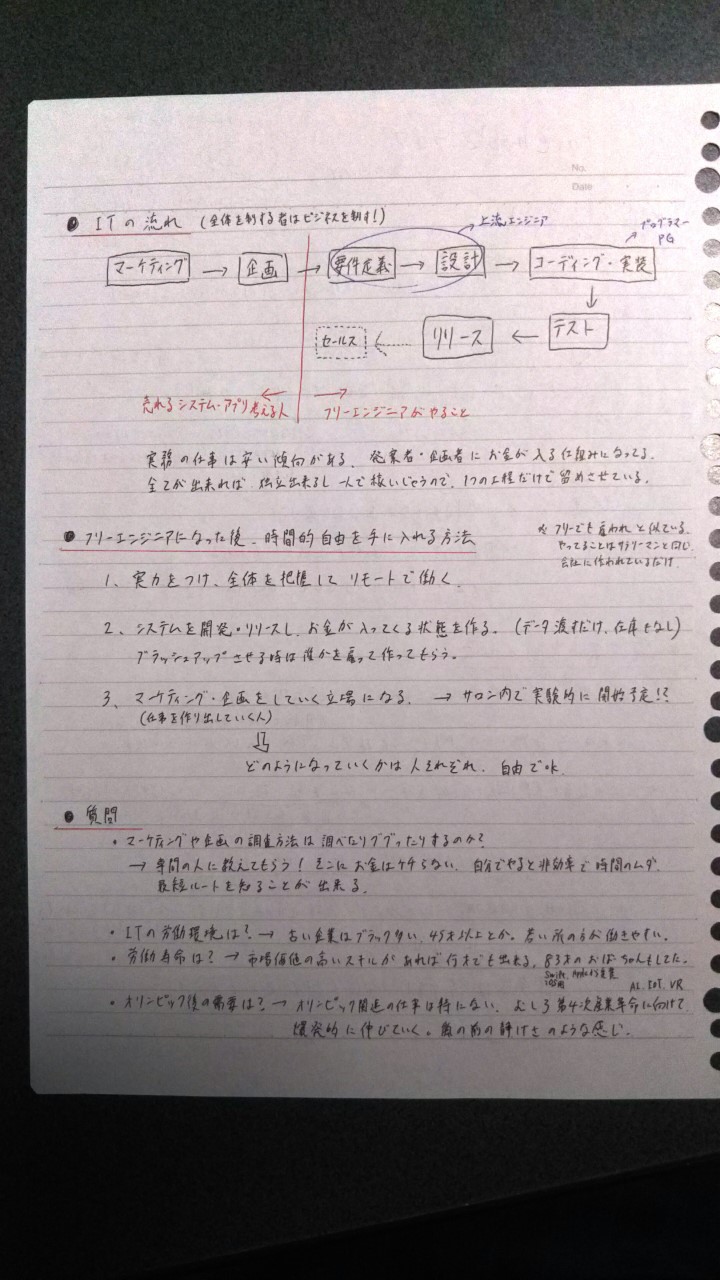 No.
Date
● ITの流れ (全体を制する者はビジネスを制す!)
→上流エンジニア
プログラマー
PG
マーケティング → 企画 → 要件定義 → 設計 → コーディング・実装
セールス ← リリース ← テスト
売れるシステム・アプリ考える人 フリーエンジニアがやること
実務の仕事は安い傾向がある。発案者・企画者にお金が入る仕組みになってる。
全てが出来れば 独立出来るし 一人で稼いじゃうので、1つの工程だけで留めさせている。
● フリーエンジニアになった後、時間的自由を手に入れる方法
※フリーでも雇われと似ている。
やってることはサラリーマンと同じ
会社に作われているだけ
1、実力をつけ、全体を把握して リモートで働く。
2、システムを開発・リリースし、お金が入ってくる状態を作る。(データ渡すだけ、在庫もなし)
ブラッシュアップさせる時は誰かを雇って作ってもらう。
3、マーケティング・企画をしていく立場になる。 → サロン内で実験的に開始予定!?
(仕事を作り出していく人)
どのようになっていくかは人それぞれ、自由でok
● 質問
・マーケティングや企画の調査方法は調べたりググったりするのか?
→ 専門の人に教えてもらう! そこにお金はケチらない、自分でやると非効率で時間のムダ、
最短ルートを知ることが出来る。
・ITの労働環境は? → 古い企業はブラック多い、45才以上とか。若い所の方が働きやすい。
・労働寿命は? → 市場価値の高いスキルがあれば何才でも出来る、83才のおばーちゃんもしてた。
Swift、
AI、IOT、VR
・オリンピック後の需要は? → オリンピック関連の仕事は特にない、むしろ第4次産業革命に向けて
爆発的に伸びていく。嵐の前の静けさのような感じ。